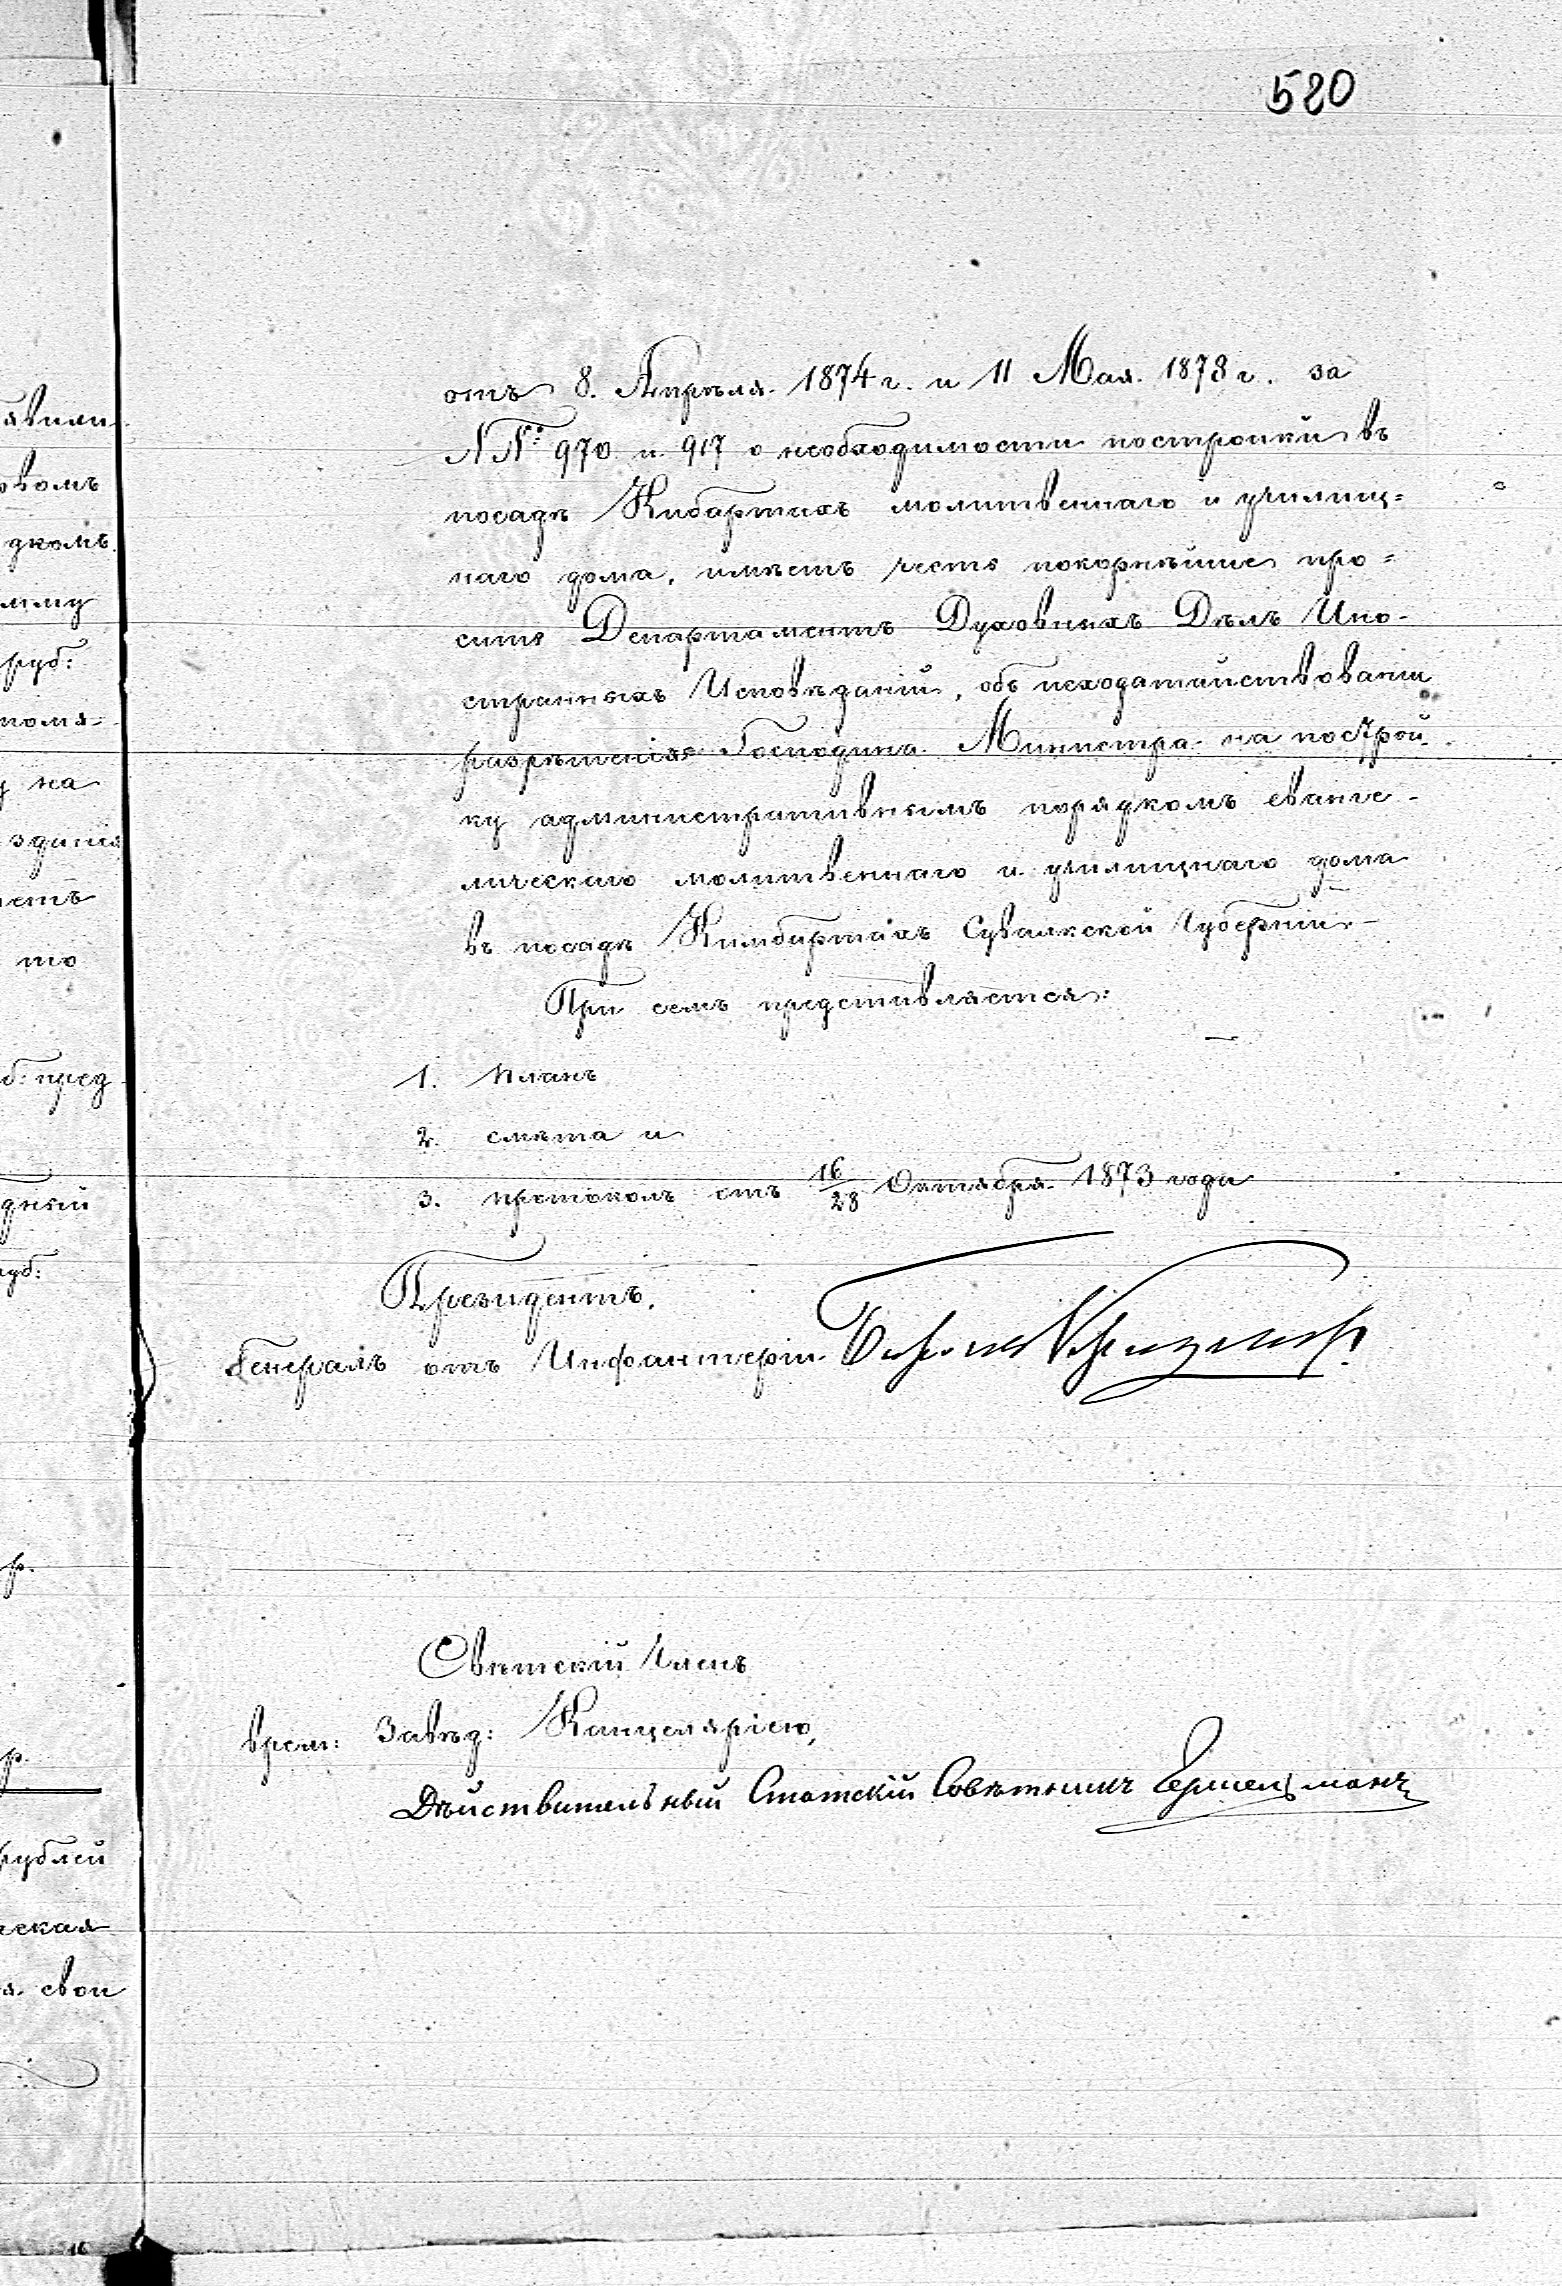 520
отъ 8. Апрѣля 1874 г. и 11 Мая 1878 г. за
NNº: 970 и 917 о необходимости постройки въ
посадѣ Кибартахъ молитвеннаго и училищ=
наго дома, имѣетъ честь покорнѣйше про=
сить Департаментъ Духовныхъ Дѣлъ Ино-
странныхъ Исповѣданій, объ исходатайствованіи
разрѣшенія Господина Министра на построй-
ку административнымъ порядкомъ еванге-
лическаго молитвеннаго и училищнаго дома
въ посадѣ Кимбартахъ Сувалкской Губерніи
При семъ представляется:
1. планъ
2. смѣта и
3. протоколъ отъ 16/28 Октября 1873 года
Президентъ,
Генералъ отъ Инфантеріи
Свѣтскій Членъ
врем: Завѣд: Канцеляріею,
Дѣйствительный Статскій Совѣтникъ
явили
дкомъ
руб:
на
зданія
то
пред
дный
руб:
р.
р.
рублей
ская
свои